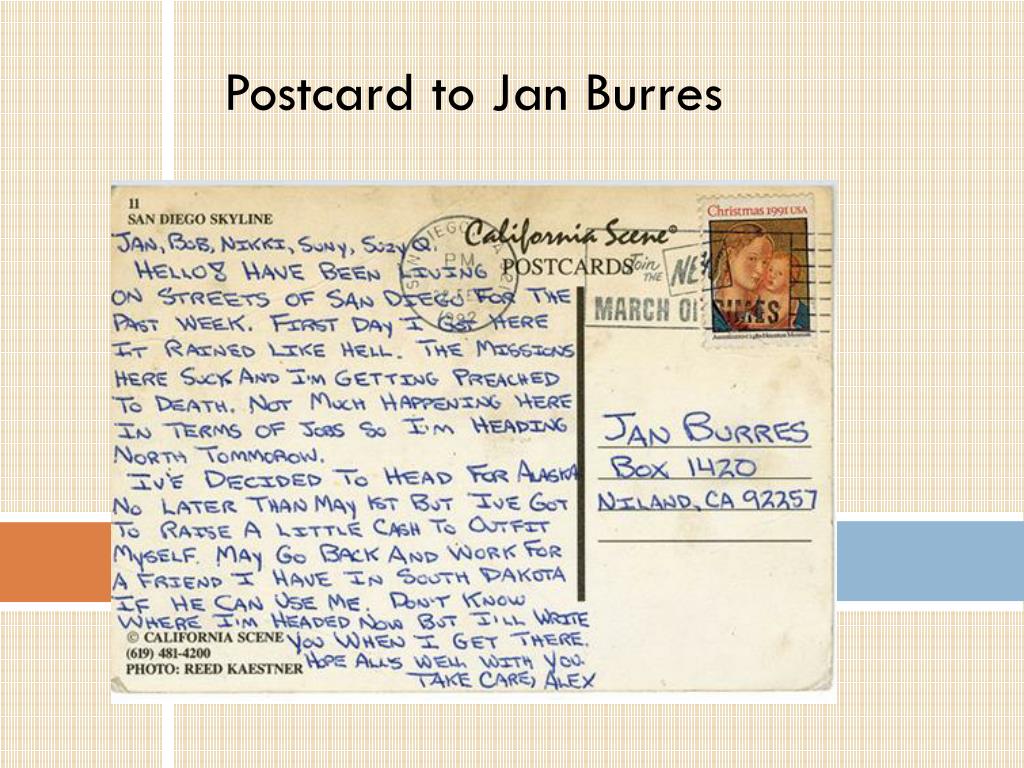 Postcard to Jan Burres
11
SAN DIEGO SKYLINE
JAN, BOB, NIKKI, SUNY, SUZY Q.
HELLO! HAVE BEEN LIVING
ON STREETS OF SAN DIEGO FOR THE
PAST WEEK. FIRST DAY I GOT HERE
IT RAINED LIKE HELL. THE MISSIONS
HERE SUCK AND I'M GETTING PREACHED
TO DEATH. NOT MUCH HAPPENING HERE
IN TERMS OF JOBS SO I'M HEADING
NORTH TOMMOROW.
IV'E DECIDED TO HEAD FOR ALASKA
NO LATER THAN MAY 1ST BUT IVE GOT
TO RAISE A LITTLE CASH TO OUTFIT
MYSELF. MAY GO BACK AND WORK FOR
A FRIEND I HAVE IN SOUTH DAKOTA
IF HE CAN USE ME. DON'T KNOW
WHERE I'M HEADED NOW BUT I'LL WRITE
YOU WHEN I GET THERE.
HOPE ALL'S WELL WITH YOU.
TAKE CARE, ALEX
© CALIFORNIA SCENE
(619) 481-4200
PHOTO: REED KAESTNER
California Scene®
POSTCARDS
PM
1992
Join
THE
MARCH OF DIMES
Christmas 1991 USA
JAN BURRES
BOX 1420
NILAND, CA 92257